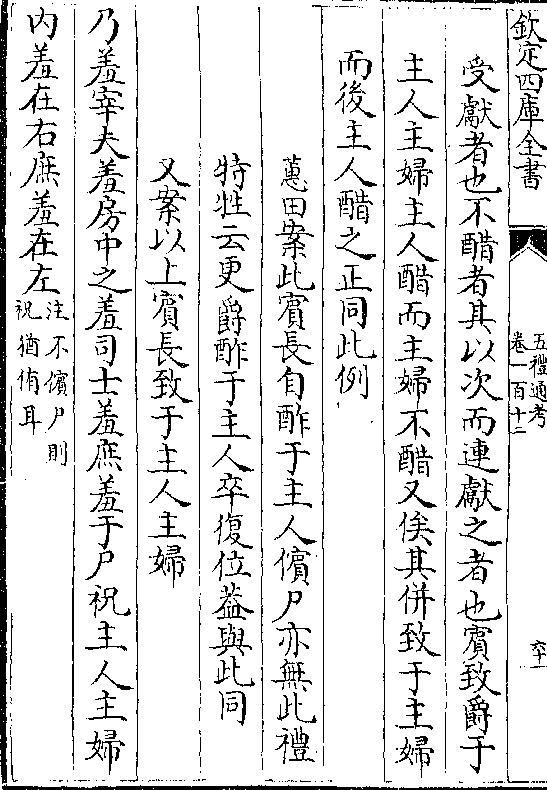 欽定四庫全書
五禮通考
卷一百十二
卒一
受獻者也不醋者其以次而連獻之者也賓致爵于
主人主婦主人醋而主婦不醋又俟其併致于主婦
而後主人醋之正同此例
蕙田案此賓長自酢于主人儐尸亦無此禮
特牲云更爵酢于主人卒復位葢與此同
又案以上賓長致于主人主婦
乃羞宰夫羞房中之羞司士羞庶羞于尸祝主人主婦
内羞在右庶羞在左
注不儐尸則
祝猶侑耳